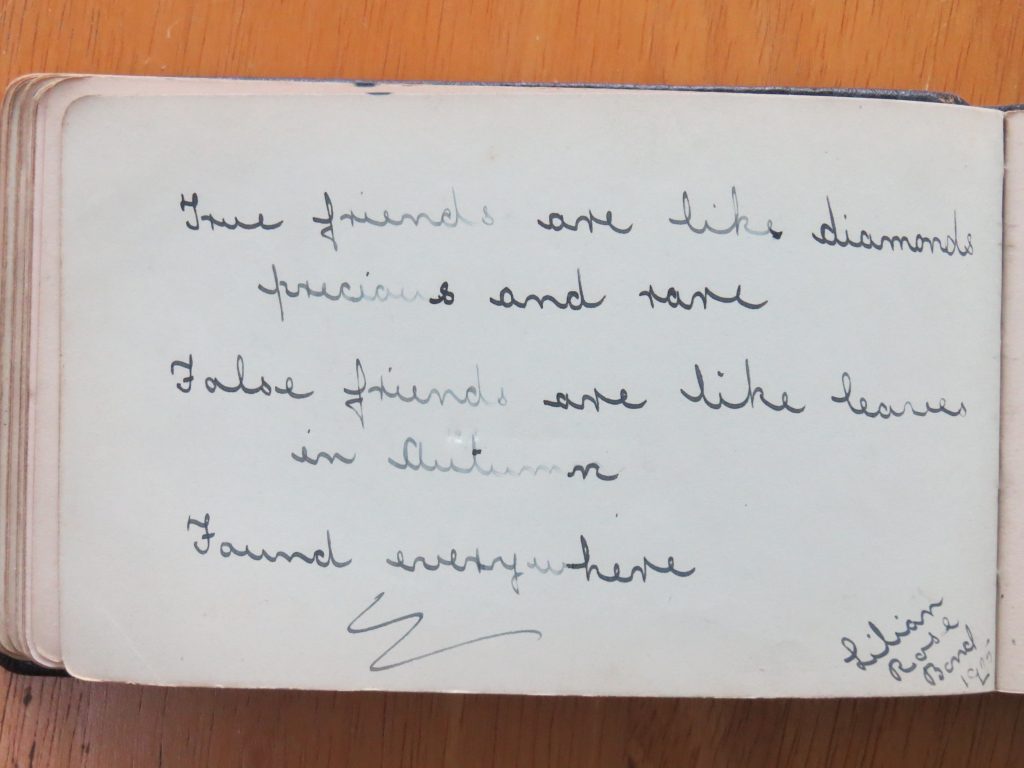 True friends are like diamonds
precious and rare
False friends are like leaves
in Autumn
Found everywhere
Lilian
Rose
Bond